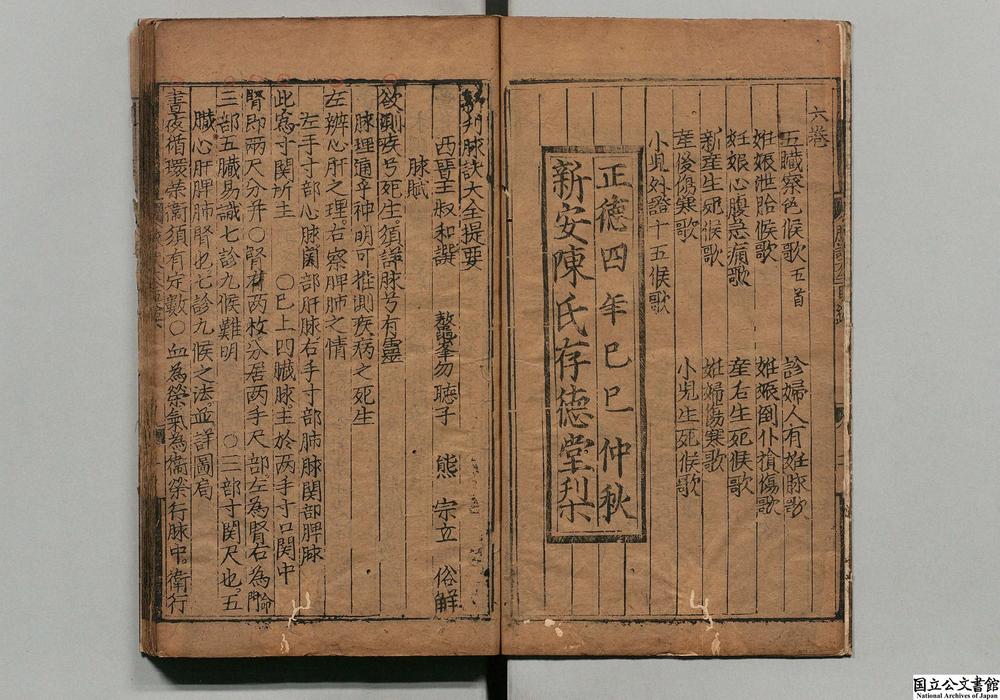 六巻
五臓察色候歌五首
診婦人有妊脉歌
妊娠泄胎候歌
妊娠倒仆損傷歌
妊娠心腹急痛歌
産右生死候歌
新産生死候歌
妊婦傷寒歌
産後傷寒歌
小児生死候歌
小児外證十五候歌
正德四年巳巳仲秋
新安陳氏存德堂梨
新刋脉訣大全提要
西晋王叔和譔 鰲峯勿聴子 熊宗立 俗解
脉賦
欲測疾兮死生須詳脉兮有靈
脉理通乎神明可推測疾病之死生
左辨心肝之理右察脾肺之情
左手寸部心脉関部肝脉右手寸部肺脉関部脾脉
此為寸関所主 〇巳上四臓脉主於两手寸口関中
腎即兩尺分并〇腎有两枚分居两手尺部左為腎右為命門
三部五臓易識七診九候難明 〇三部寸関尺也五
臓心肝脾肺腎也七診九候之法並詳圖局
晝夜循環榮衛須有定數〇血為榮氣為衛榮行脉中衛行
国立公文書館
National Archives of Japan